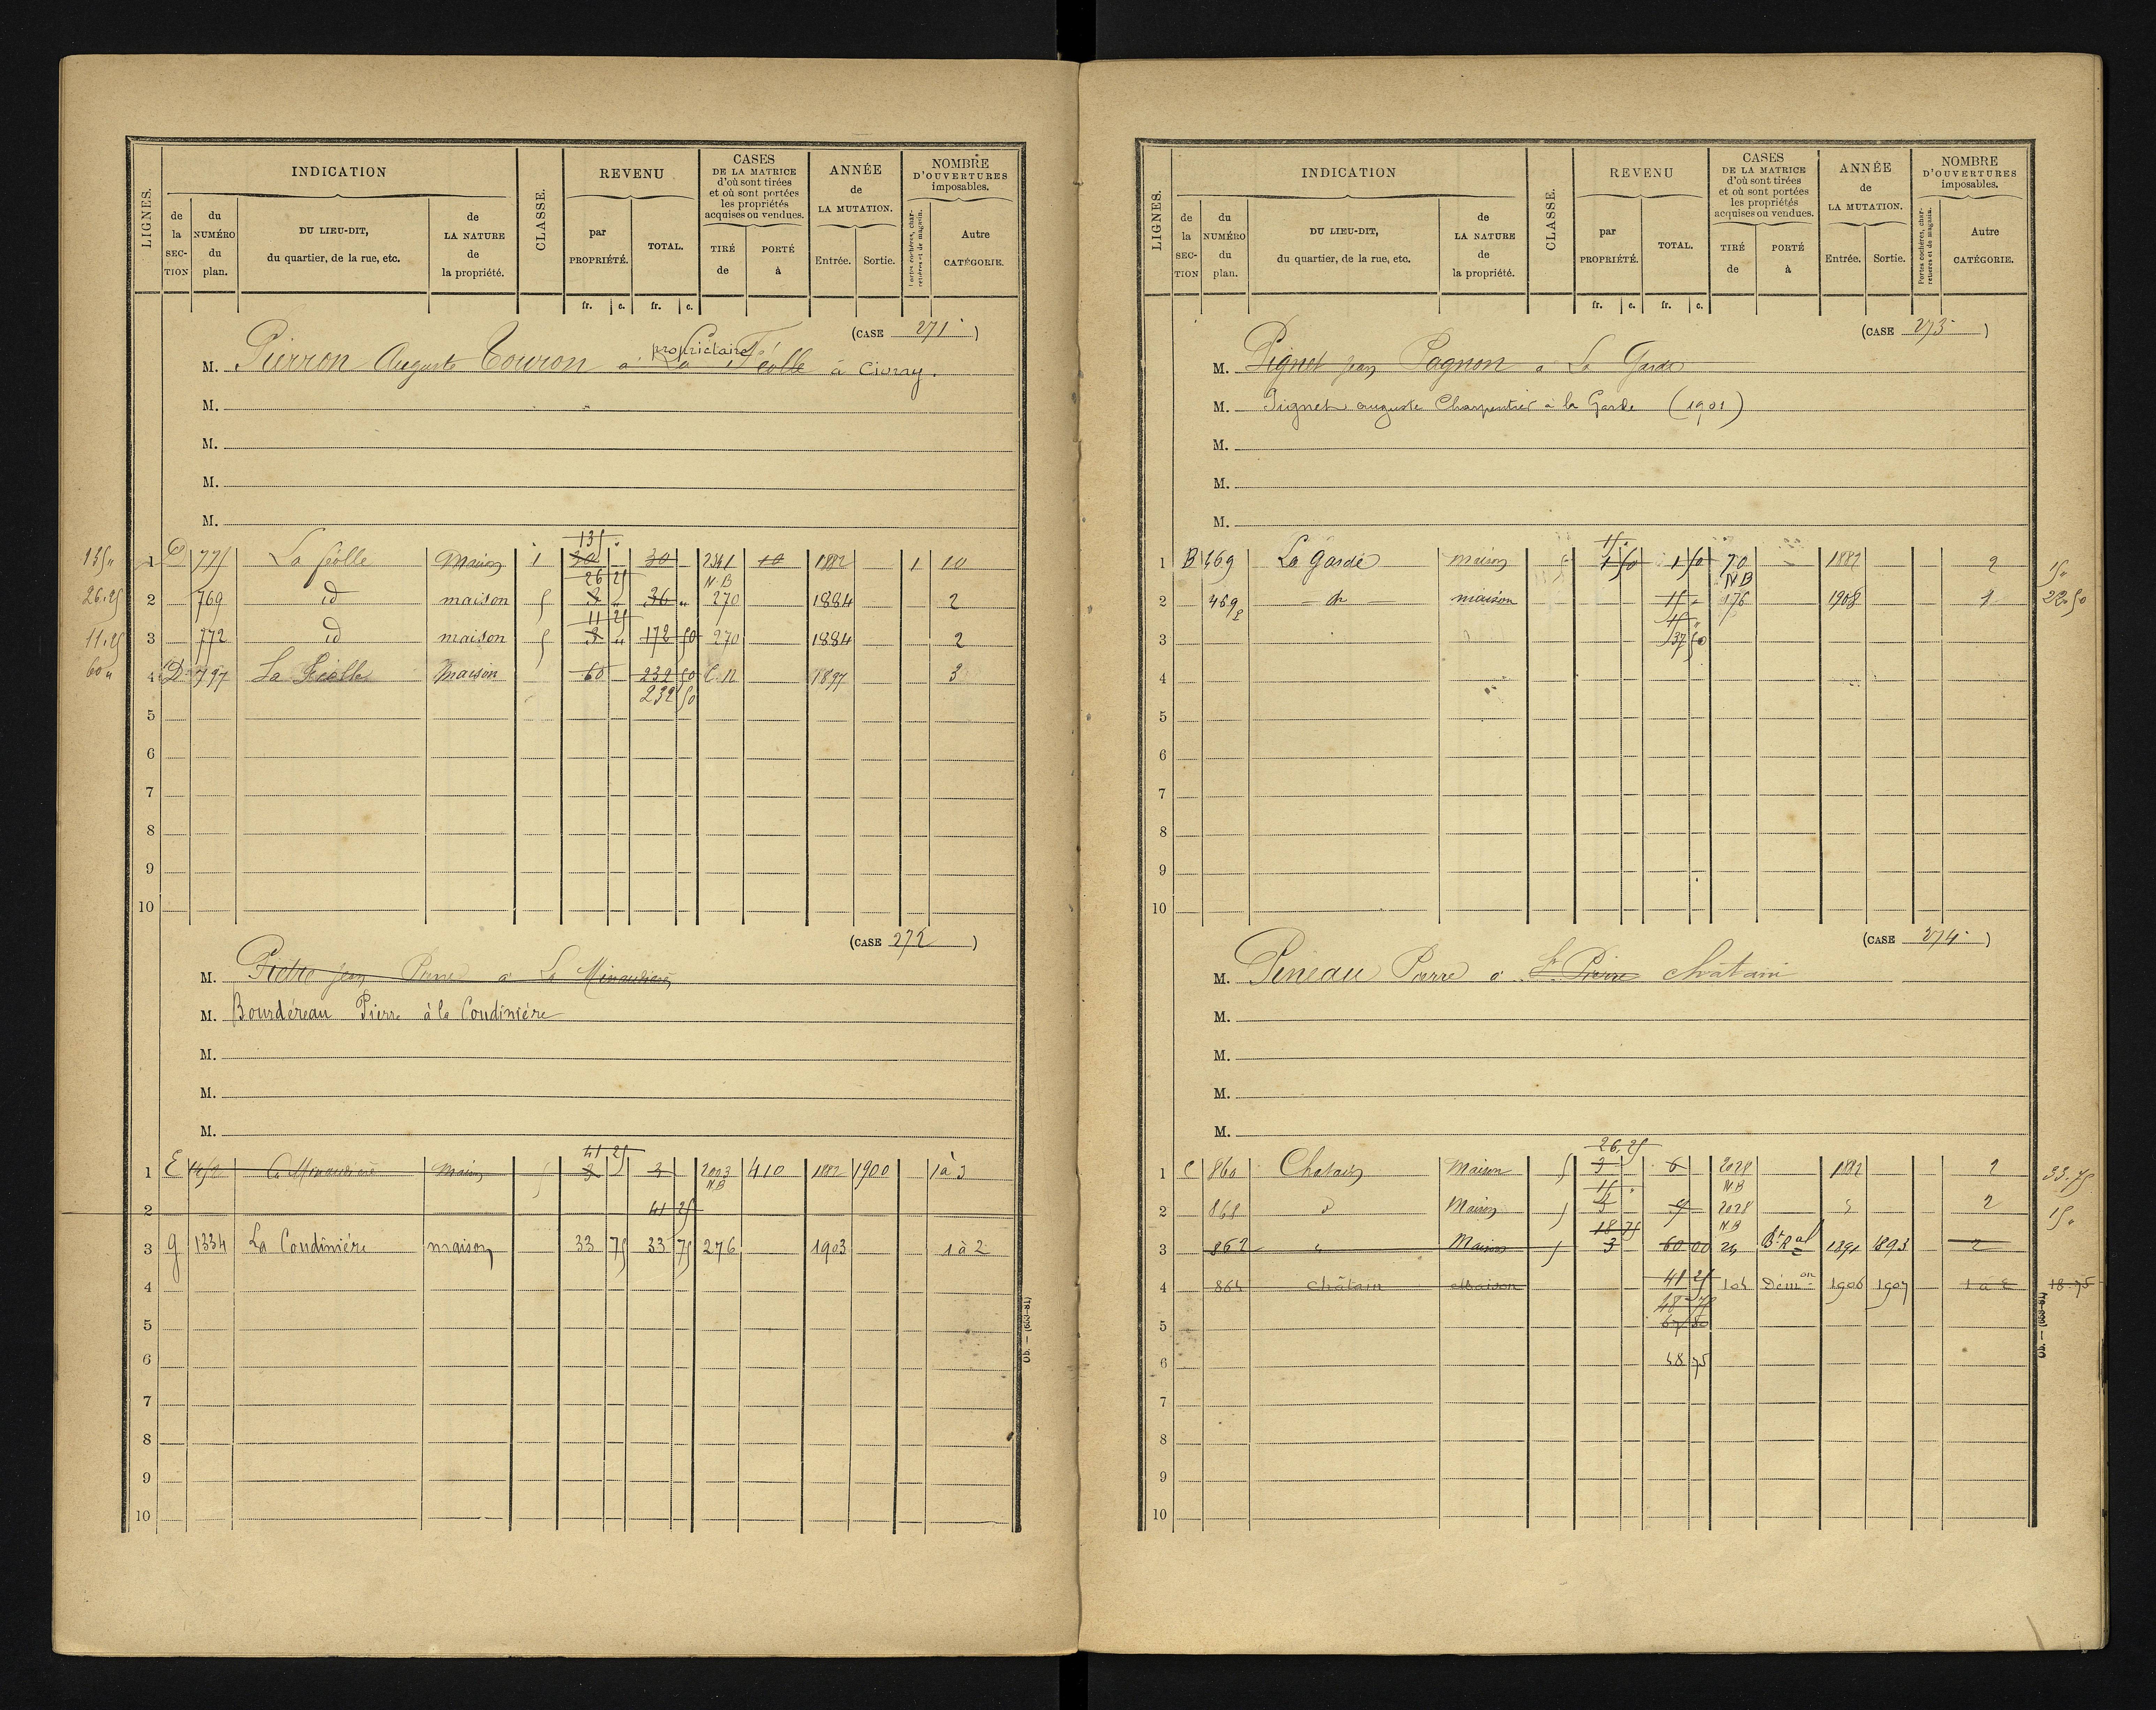 LIGNES.
INDICATION
CLASSE.
REVENU
CASES
DE LA MATRICE
d'où sont tirées
et où sont portées
les propriétés
acquises ou vendues.
ANNÉE
de
LA MUTATION.
NOMBRE
D'OUVERTURES
imposables.
de la SECTION
du NUMÉRO du plan.
DU LIEU-DIT,
du quartier, de la rue, etc.
de LA NATURE de la propriété.
par PROPRIÉTÉ.
TOTAL.
TIRÉ de
PORTÉ à
Entrée.
Sortie.
Portes cochères, charretières et de magasin.
Autre CATÉGORIE.
fr. c. fr. c.
(CASE 271)
propriétaire
M. Pierron Auguste Touron à La Féolle à Civray.
M.
M.
M.
M.
135
135 " 1 775 La féolle Maison 1 30 30 2341 10 1882 1 10
26 25 NB
26.25 2 769 id maison 5 3 " 36 " 270 1884 2
11 25
11.25 3 772 id maison 5 3 " 172 50 270 1884 2
60 " 4 D 797 La Féolle Maison 60 232 50 C.N 1897 3
232 50
5
6
7
8
9
10
(CASE 272)
M. Jean Pierre à La
M. Bourdéreau Pierre à la Coudinière
M.
M.
M.
41 25
1 E Maison 5 3 3 2023 410 1882 1900 1 à 3
NB
2 41 25
3 g 1334 La Coudinière maison 33 75 33 75 276 1903 1 à 2
4
5
6
7
8
9
10
Ob. — (663-81)
LIGNES.
INDICATION
CLASSE.
REVENU
CASES
DE LA MATRICE
d'où sont tirées
et où sont portées
les propriétés
acquises ou vendues.
ANNÉE
de
LA MUTATION.
NOMBRE
D'OUVERTURES
imposables.
de la SECTION
du NUMÉRO du plan.
DU LIEU-DIT,
du quartier, de la rue, etc.
de LA NATURE de la propriété.
par PROPRIÉTÉ.
TOTAL.
TIRÉ de
PORTÉ à
Entrée.
Sortie.
Portes cochères, charretières et de magasin.
Autre CATÉGORIE.
fr. c. fr. c.
(CASE 273)
M. Pignet jean Pagnon à La Garde
M. Pignet auguste Charpentier à la Garde (1901)
M.
M.
M.
15
1 B 469 La Garde maison 1 50 1 50 70 1882 2 15 "
NB
2 469 maison 15 176 1908 1 22.50
3 37 50
4
5
6
7
8
9
10
(CASE 274)
M. Pineau Pierre à St Pierre châtain
M.
M.
M.
M.
26.25
1 C 860 Chatain Maison 5 3 6 2028 1882 2 33.75
15 NB
2 861 Maison 5 3 9 2028 2 15 "
18 75 NB
3 862 Maison 5 3 60 00 24 Bt Ral 1891 1893 2
4 864 châtain Maison 41 25 104 Démon 1906 1907 1 à 2 18.75
48 75
5 67 50
6 48 75
7
8
9
10
Ob. — (663-81)